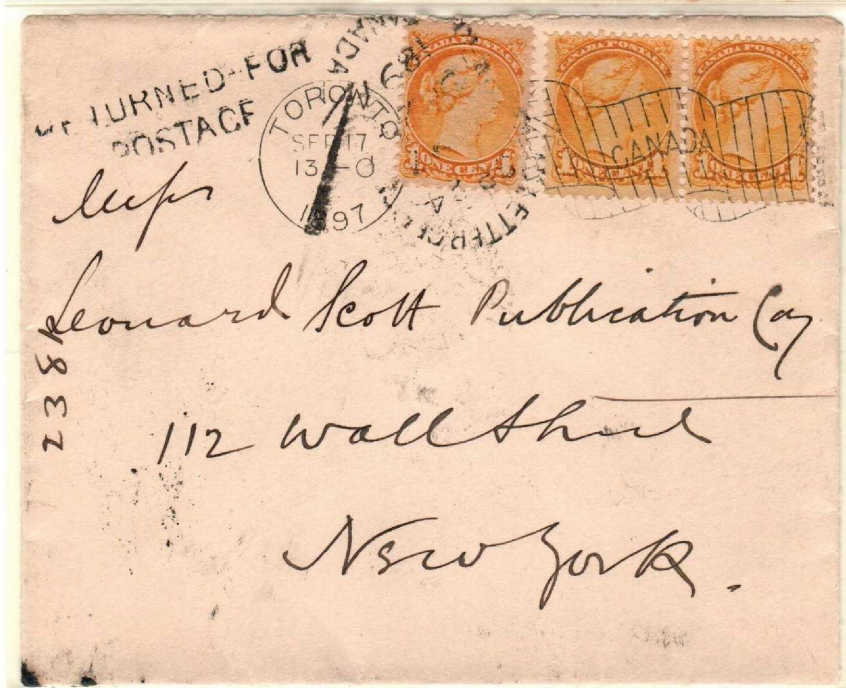 RETURNED-FOR
POSTAGE
TORONTO
CANADA
SEP 17
13-0
1897
CANADA POSTAGE
ONE CENT
1 1
CANADA POSTAGE
1 1
CANADA POSTAGE
ONE CENT 1
CANADA
LETTER
Leonard Scott Publication Coy
112 Wall Street
New York.